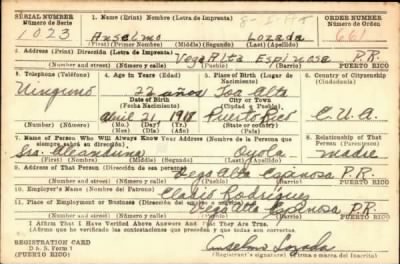 SERIAL NUMBER
Número de Serie
1. NAME (Print) Nombre (Letra de Imprenta)
ORDER NUMBER
Número de Orden
1023
Anselmo Lozada
661
(First) (Nombre) (Middle) (Segundo) (Last) (Apellido)
2. ADDRESS (Print) Dirección (Letra de Imprenta)
Vega Alta Espinosa P.R.
PUERTO RICO
3. TELEPHONE (Teléfono)
4. AGE IN YEARS (Edad)
5. PLACE OF BIRTH (Lugar de Nacimiento)
6. COUNTRY OF CITIZENSHIP
(Ciudadanía)
Ninguno
22 años
Toa Alta
DATE OF BIRTH
(Fecha Nacimiento)
CITY OR TOWN
(Ciudad o Pueblo)
abril 21 1918
Puerto Rico
E.U.A.
(Mo.) (Day) (Yr.)
7. NAME OF PERSON WHO WILL ALWAYS KNOW YOUR ADDRESS
8. RELATIONSHIP OF THAT PERSON
Sra. Oyola
madre
(First) (Nombre) (Middle) (Segundo) (Last) (Apellido)
9. ADDRESS OF THAT PERSON (Dirección de esa persona)
Vega Alta Espinosa P.R.
PUERTO RICO
10. EMPLOYER'S NAME (Nombre del Patrono)
Eladio Rodríguez
11. PLACE OF EMPLOYMENT OR BUSINESS
Vega Alta Espinosa P.R.
PUERTO RICO
I AFFIRM THAT I HAVE VERIFIED ABOVE ANSWERS AND THAT THEY ARE TRUE.
Afirmo que he verificado las contestaciones que preceden y que todas son correctas.
REGISTRATION CARD
D. S. Form 1
(PUERTO RICO)
Anselmo Lozada
(Registrant's signature) (Firma o marca del Inscrito)